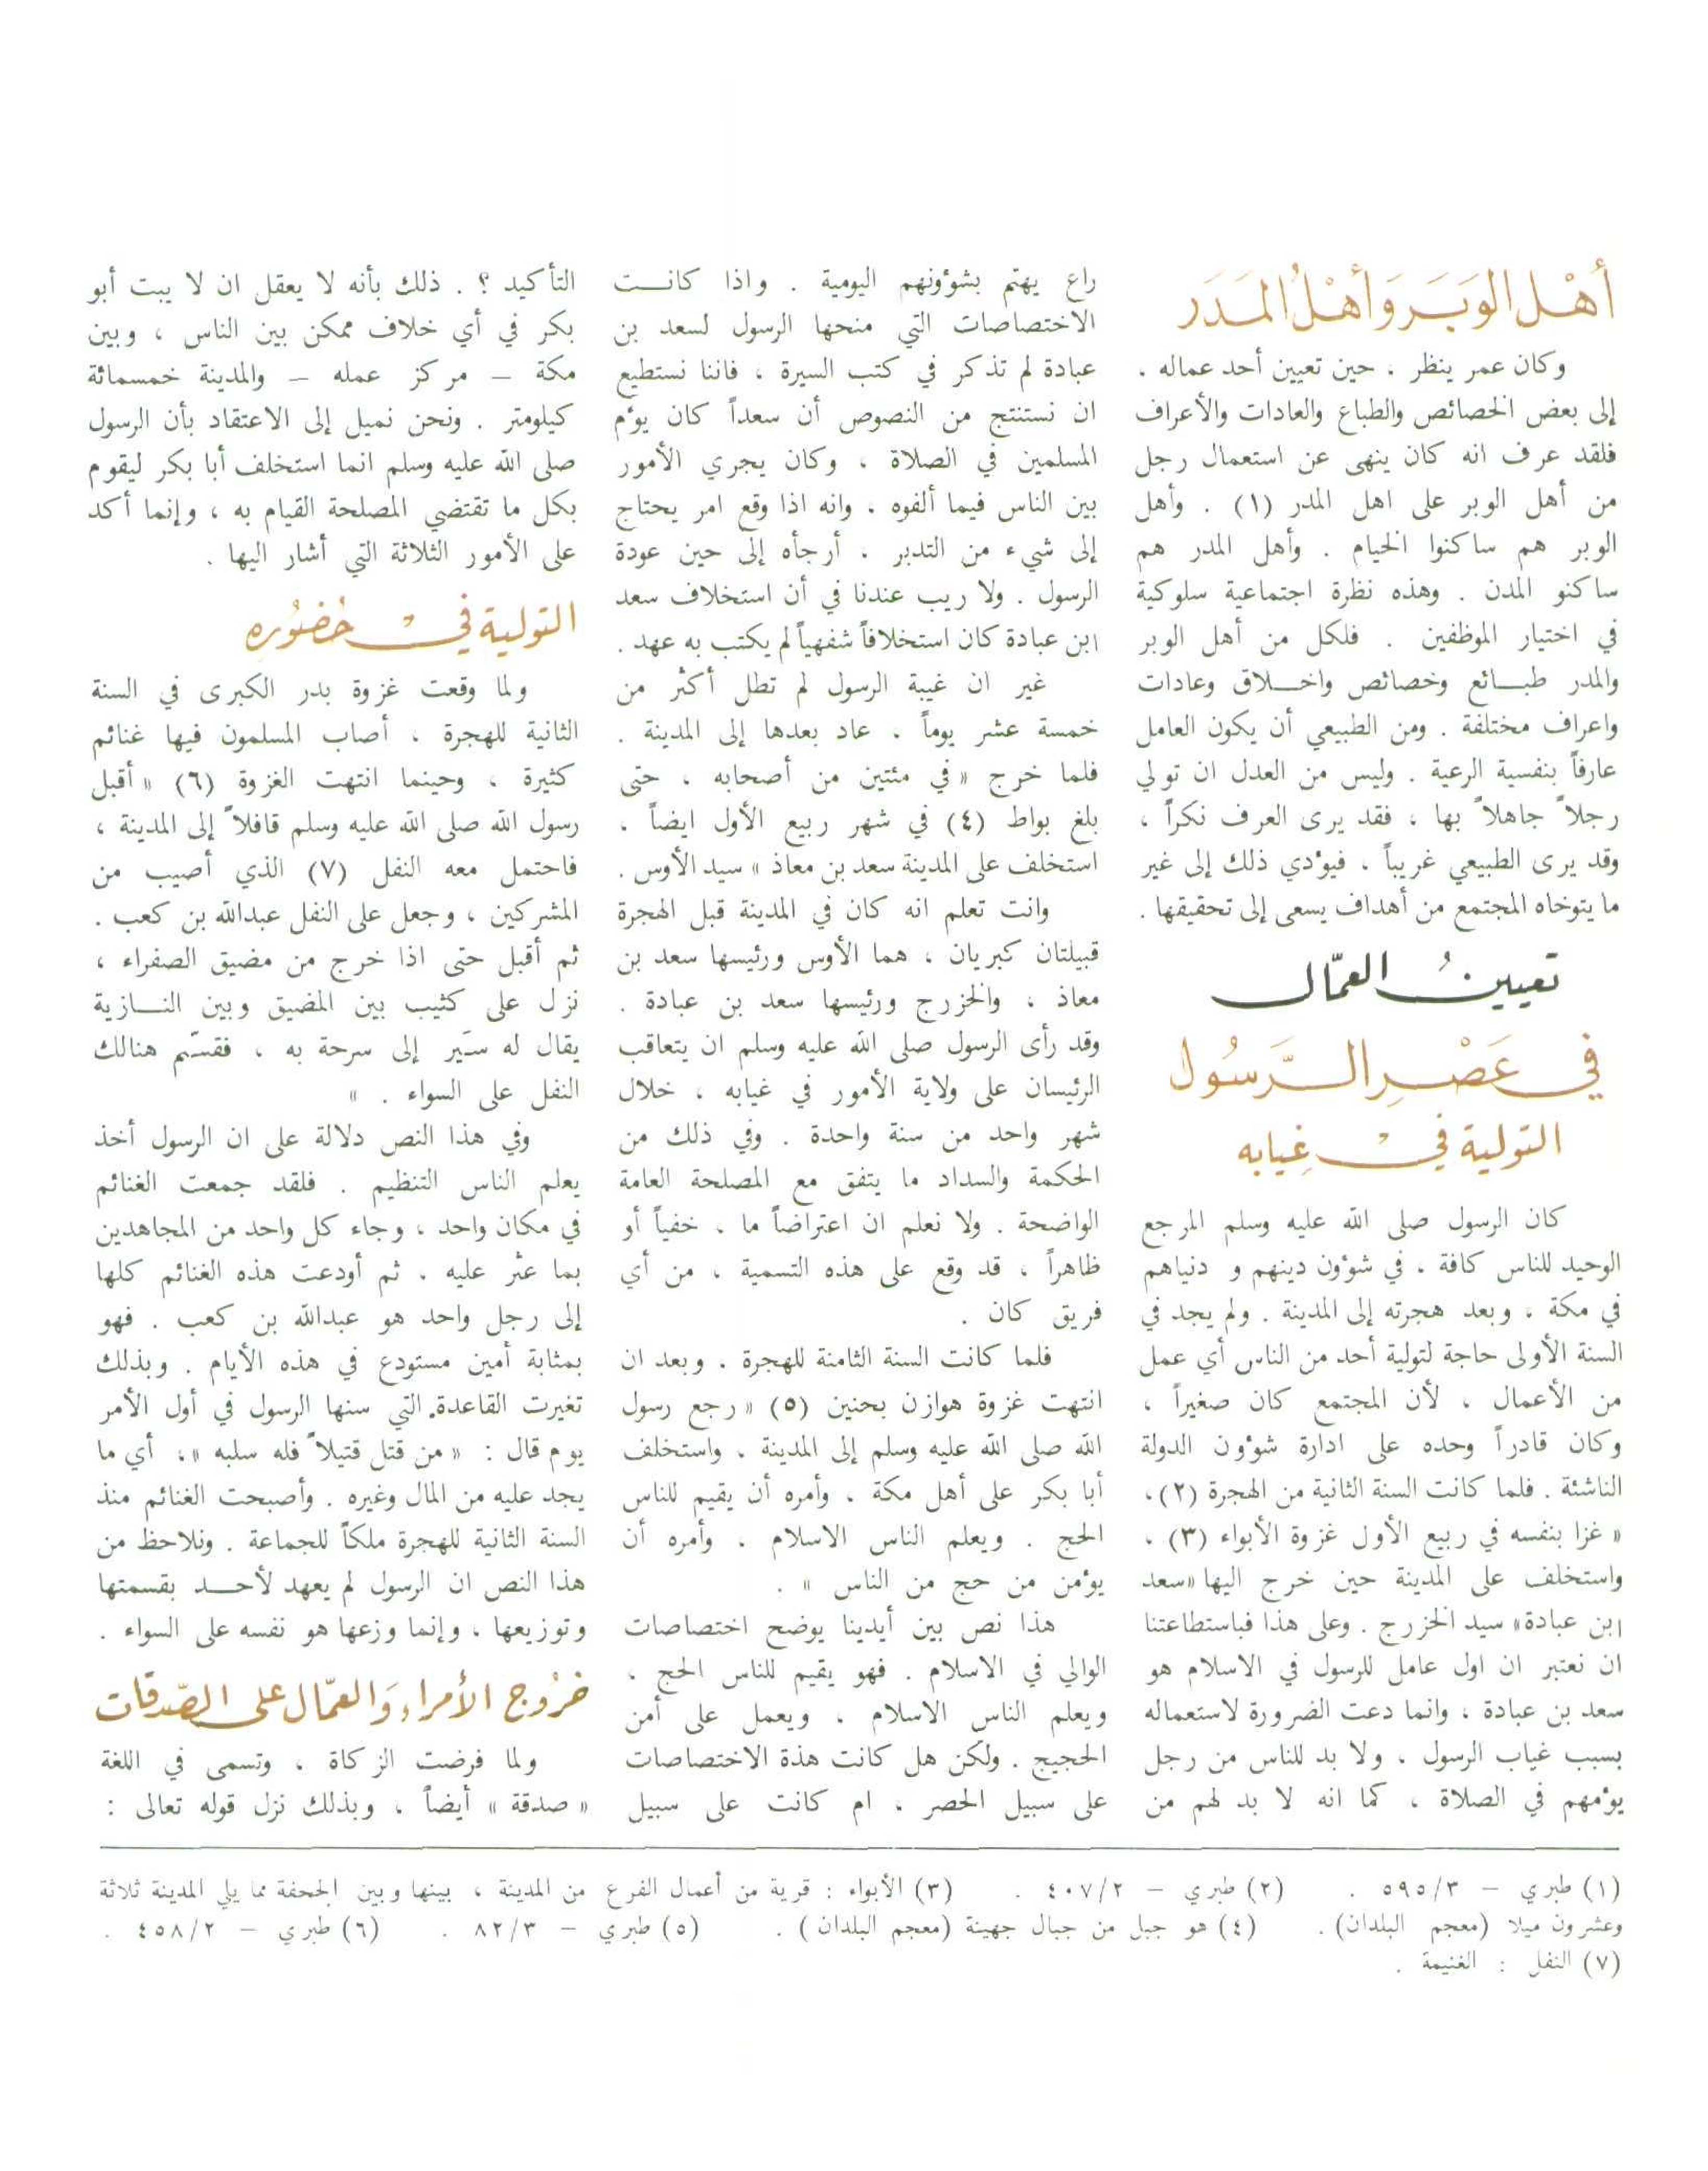 أهْل الوبَر وَأهْلُ المَدَر
وكان عمر ينظر ، حين تعيين أحد عماله .
إلى بعض الخصائص والطباع والعادات والأعراف
فلقد عرف انه كان ينهى عن استعمال رجل
من أهل الوبر على اهل المدر (١) . وأهل
الوبر هم ساكنوا الخيام . وأهل المدر هم
ساكنو المدن . وهذه نظرة اجتماعية سلوكية
في اختيار الموظفين . فلكل من أهل الوبر
والمدر طبـــائع وخصائص واخـــلاق وعادات
واعراف مختلفة . ومن الطبيعي أن يكون العامل
عارفاً بنفسية الرعية . وليس من العدل ان تولي
رجلاً جاهلاً بها ، فقد يرى العرف نكراً ،
وقد يرى الطبيعي غريباً ، فيؤدي ذلك إلى غير
ما يتوخاه المجتمع من أهداف يسعى إلى تحقيقها .
تعيينُ العمّال
في عَصْرِ الرَّسُول
التولية في غِيابه
كان الرسول صلى الله عليه وسلم المرجع
الوحيد للناس كافة ، في شؤون دينهم و دنياهم
في مكة ، وبعد هجرته إلى المدينة . ولم يجد في
السنة الأولى حاجة لتولية أحد من الناس أي عمل
من الأعمال ، لأن المجتمع كان صغيراً ،
وكان قادراً وحده على ادارة شؤون الدولة
الناشئة . فلما كانت السنة الثانية من الهجرة (٢)،
« غزا بنفسه في ربيع الأول غزوة الأبواء (٣) ،
واستخلف على المدينة حين خرج اليها «سعد
ابن عبادة» سيد الخزرج . وعلى هذا فباستطاعتنا
ان نعتبر ان اول عامل للرسول في الاسلام هو
سعد بن عبادة ، وانما دعت الضرورة لاستعماله
بسبب غياب الرسول ، ولا بد للناس من رجل
يؤمهم في الصلاة ، كما انه لا بد لهم من
راع يهتم بشؤونهم اليومية . واذا كانـــت
الاختصاصات التي منحها الرسول لسعد بن
عبادة لم تذكر في كتب السيرة ، فاننا نستطيع
ان نستنتج من النصوص أن سعداً كان يؤم
المسلمين في الصلاة ، وكان يجري الأمور
بين الناس فيما ألفوه ، وانه اذا وقع امر يحتاج
إلى شيء من التدبر ، أرجأه إلى حين عودة
الرسول . ولا ريب عندنا في أن استخلاف سعد
ابن عبادة كان استخلافاً شفهياً لم يكتب به عهد .
غير ان غيبة الرسول لم تطل أكثر من
خمسة عشر يوماً ، عاد بعدها إلى المدينة .
فلما خرج « في مئتين من أصحابه ، حتى
بلغ بواط (٤) في شهر ربيع الأول ايضاً ،
استخلف على المدينة سعد بن معاذ » سيد الأوس .
وانت تعلم انه كان في المدينة قبل الهجرة
قبيلتان كبريان ، هما الأوس ورئيسها سعد بن
معاذ ، والخزرج ورئيسها سعد بن عبادة .
وقد رأى الرسول صلى الله عليه وسلم ان يتعاقب
الرئيسان على ولاية الأمور في غيابه ، خلال
شهر واحد من سنة واحدة . وفي ذلك من
الحكمة والسداد ما يتفق مع المصلحة العامة
الواضحة . ولا نعلم ان اعتراضاً ما ، خفياً أو
ظاهراً ، قد وقع على هذه التسمية ، من أي
فريق كان .
فلما كانت السنة الثامنة للهجرة ، وبعد ان
انتهت غزوة هوازن بحنين (٥) « رجع رسول
الله صلى الله عليه وسلم إلى المدينة ، واستخلف
أبا بكر على أهل مكة ، وأمره أن يقيم للناس
الحج . ويعلم الناس الاسلام ، وأمره أن
يؤمن من حج من الناس » .
هذا نص بين أيدينا يوضح اختصاصات
الوالي في الاسلام . فهو يقيم للناس الحج ،
ويعلم الناس الاسلام ، ويعمل على أمن
الحجيج . ولكن هل كانت هذة الاختصاصات
على سبيل الحصر ، ام كانت على سبيل
التأكيد ؟ . ذلك بأنه لا يعقل ان لا يبت أبو
بكر في أي خلاف ممكن بين الناس ، وبين
مكة – مركز عمله – والمدينة خمسمائة
كيلومتر . ونحن نميل إلى الاعتقاد بأن الرسول
صلى الله عليه وسلم انما استخلف أبا بكر ليقوم
بكل ما تقتضي المصلحة القيام به ، وإنما أكد
على الأمور الثلاثة التي أشار اليها .
التولية في حُضُوره
ولما وقعت غزوة بدر الكبرى في السنة
الثانية للهجرة ، أصاب المسلمون فيها غنائم
كثيرة ، وحينما انتهت الغزوة (٦) « أقبل
رسول الله صلى الله عليه وسلم قافلاً إلى المدينة ،
فاحتمل معه النفل (٧) الذي أصيب من
المشركين ، وجعل على النفل عبدالله بن كعب .
ثم أقبل حتى اذا خرج من مضيق الصفراء ،
نزل على كثيب بين المضيق وبين النـــازية
يقال له سَيَر إلى سرحة به ، فقسّم هنالك
النفل على السواء . »
وفي هذا النص دلالة على ان الرسول أخذ
يعلم الناس التنظيم . فلقد جمعت الغنائم
في مكان واحد ، وجاء كل واحد من المجاهدين
بما عثر عليه . ثم أودعت هذه الغنائم كلها
إلى رجل واحد هو عبدالله بن كعب . فهو
بمثابة أمين مستودع في هذه الأيام . وبذلك
تغيرت القاعدة التي سنها الرسول في أول الأمر
يوم قال : « من قتل قتيلاً فله سلبه »، أي ما
يجد عليه من المال وغيره . وأصبحت الغنائم منذ
السنة الثانية للهجرة ملكاً للجماعة . ونلاحظ من
هذا النص ان الرسول لم يعهد لأحـــد بقسمتها
وتوزيعها ، وإنما وزعها هو نفسه على السواء .
خرُوج الأمراء وَالعمّال على الصّدقات
ولما فرضت الزكاة ، وتسمى في اللغة
« صدقة » أيضاً ، وبذلك نزل قوله تعالى :
(١) طبري – ٥٩٥/٣ . (٢) طبري – ٤٠٧/٢ . (٣) الأبواء : قرية من أعمال الفرع من المدينة ، بينها وبين الجحفة مما يلي المدينة ثلاثة
وعشرون ميلا (معجم البلدان). (٤) هو جبل من جبال جهينة (معجم البلدان ) . (٥) طبري – ٨٢/٣ . (٦) طبري – ٤٥٨/٢ .
(٧) النفل : الغنيمة .